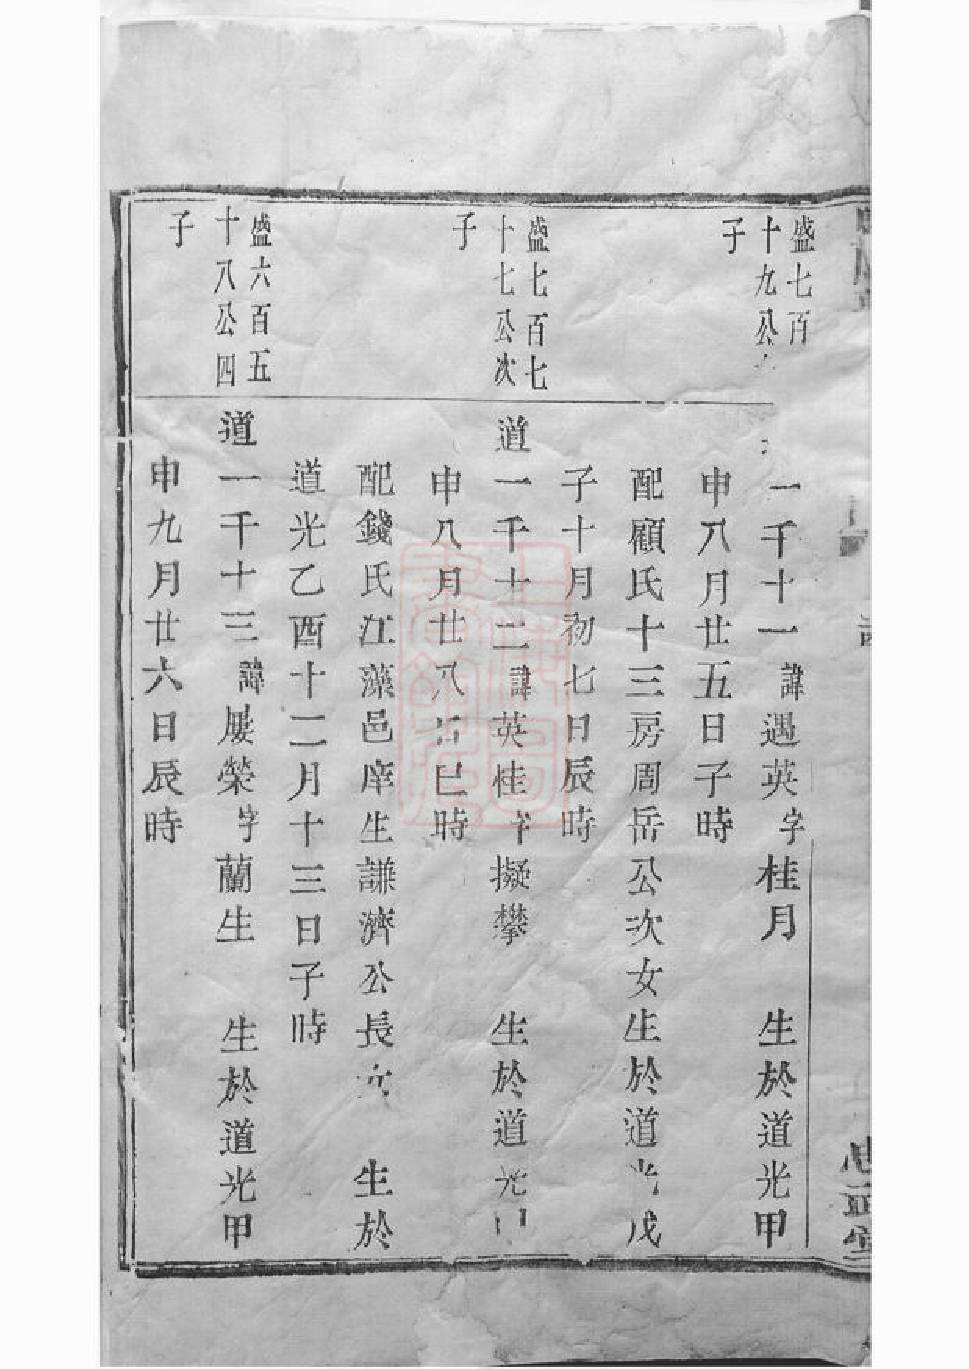 盛七百
十九公
子
一千十一諱遇英字桂月 生於道光甲
申八月廿五日子時
配顧氏十三房周岳公次女生於道光戊
子十月初七日辰時
盛七百七
十七公次
子
道一千十二諱英桂字擬攀 生於道光
申八月廿八日巳時
配錢氏江藻邑庠生謙濟公長女 生於
道光乙酉十二月十三日子時
盛六百五
十八公四
子
道一千十三諱屢榮字蘭生 生於道光甲
申九月廿六日辰時